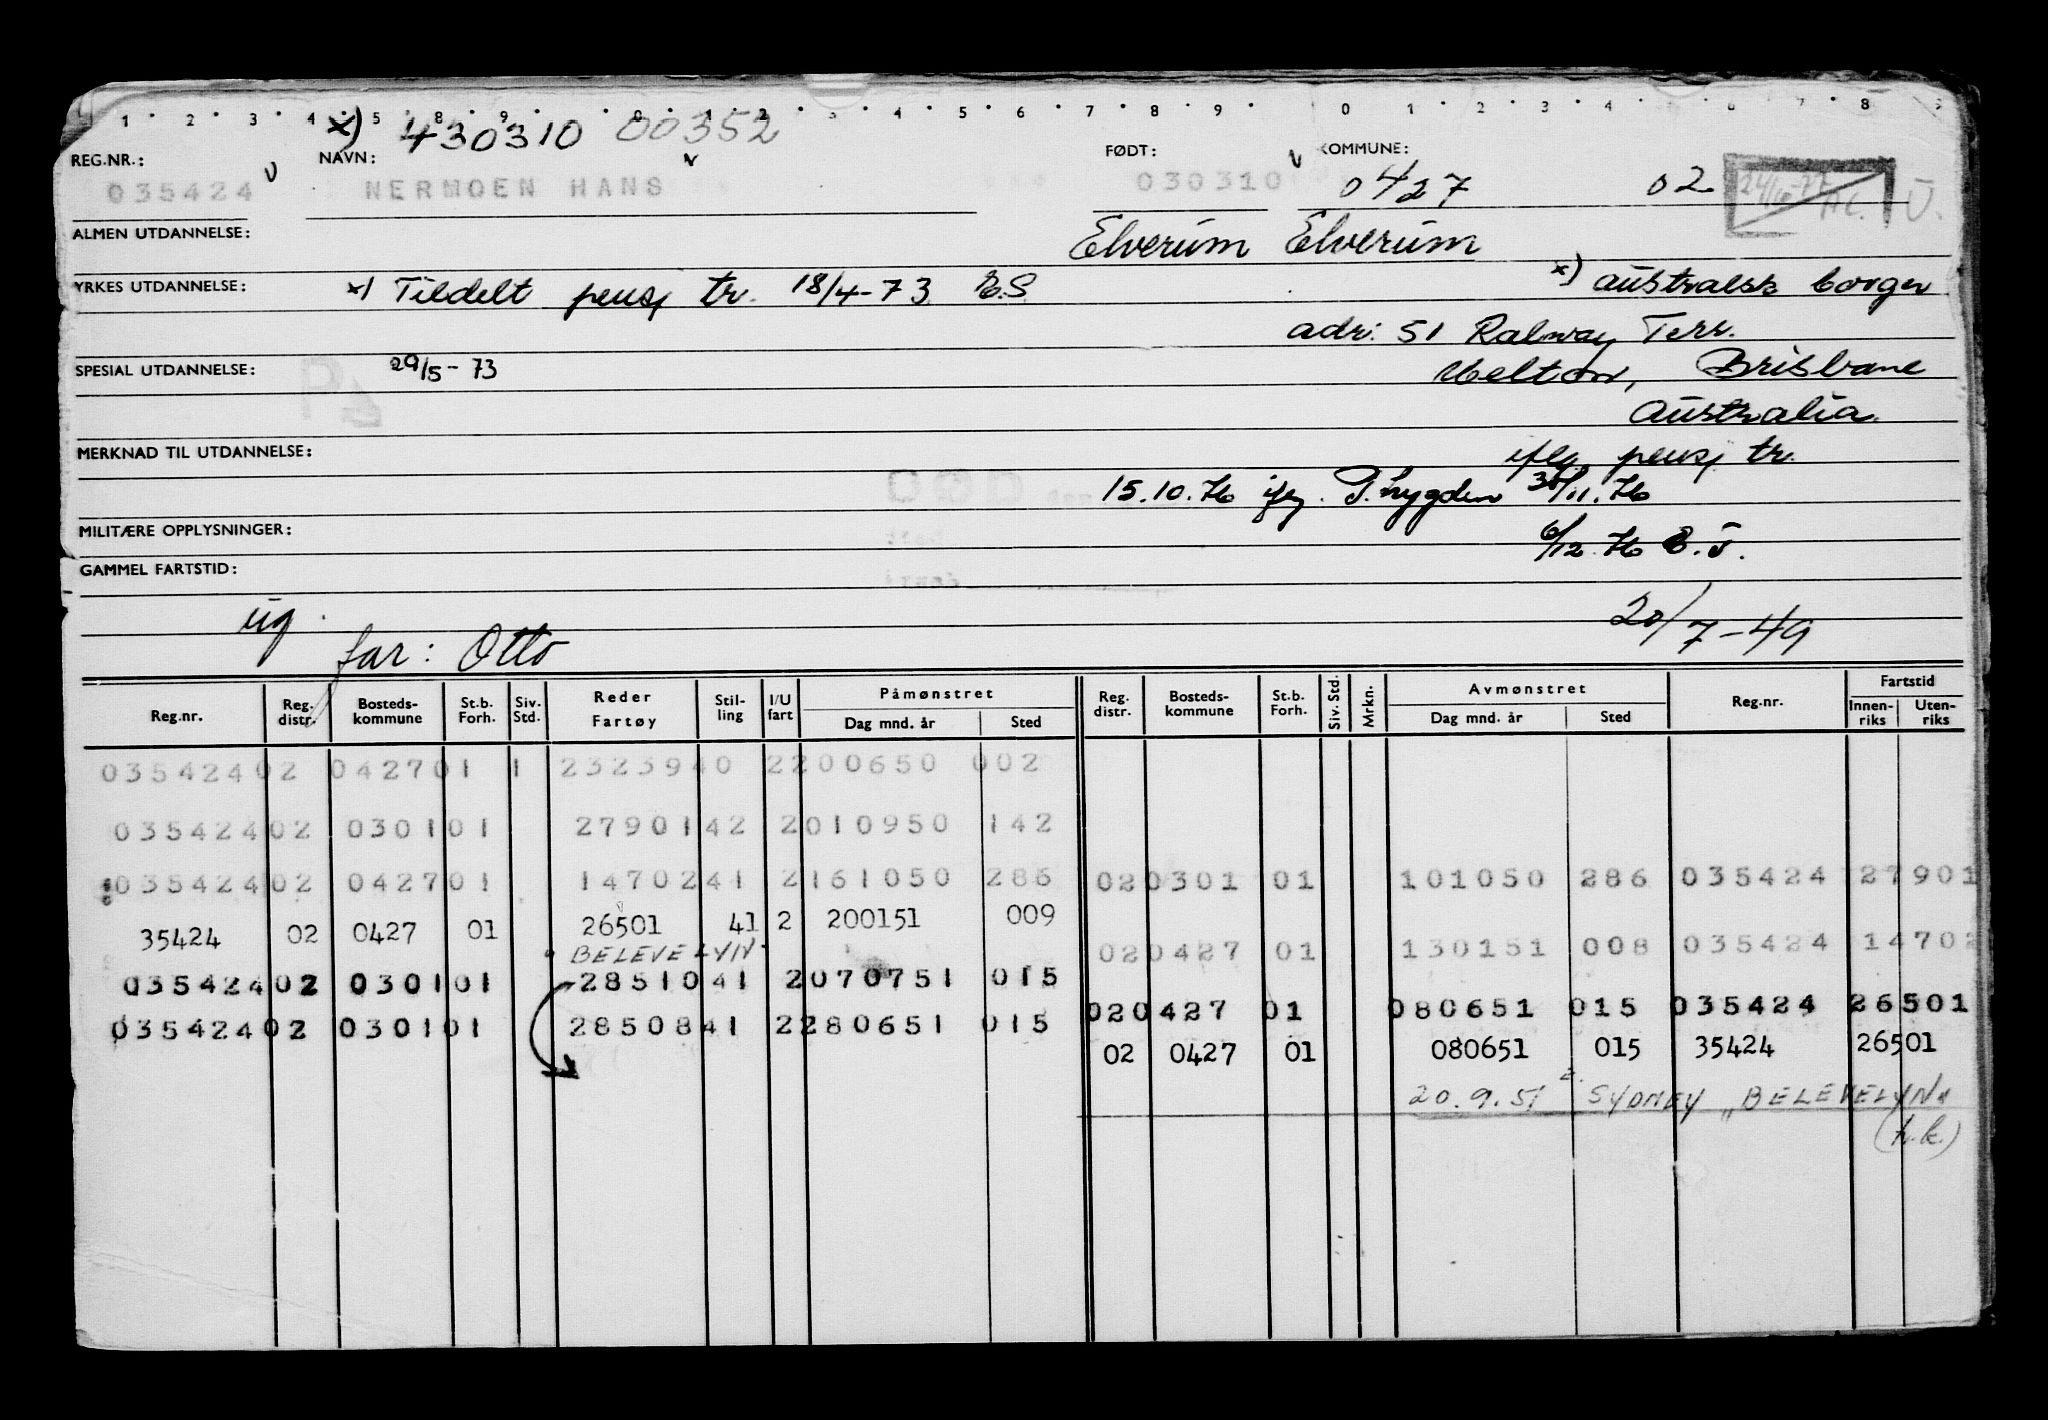 1 2 3 4 5 8 9 0 1 2 3 4 5 6 7 8 9 0 1 2 3 4 5 6 7 8 9
x) 430310 00352
REG.NR.: NAVN: FØDT: KOMMUNE:
035424 v NERMOEN HANS v 030310 v 0427 02 Ū.
ALMEN UTDANNELSE: Elverum Elverum
YRKES UTDANNELSE: x) Tildelt pensj tr. 18/4-73 x) australsk borger
adr: 51 Ralway Terr.
SPESIAL UTDANNELSE: 29/5-73 Brisbane
Australia.
MERKNAD TIL UTDANNELSE: iflg pensj tr.
15.10.76 iflg. 30/11.76
MILITÆRE OPPLYSNINGER: 6/12.76
GAMMEL FARTSTID:
ug. 20/7-49
far: Otto
Reg.nr. Reg. distr. Bosteds-kommune St.b. Forh. Siv. Std. Reder Fartøy Stil-ling I/U fart Påmønstret Dag mnd. år Sted Reg. distr. Bosteds-kommune St.b. Forh. Siv. Std. Mrkn. Avmønstret Dag mnd. år Sted Reg.nr. Fartstid Innen-riks Uten-riks
03542402 042701 1 2323940 2200650 002
03542402 030101 2790142 2010950 142
03542402 042701 1470241 2161050 286 020301 01 101050 286 035424 27901
35424 02 0427 01 26501 41 2 200151 009
020427 01 130151 008 035424 14702
BELEVELYN
03542402 030101 2851041 2070751 015
020427 01 080651 015 035424 26501
03542402 030101 2850841 2280651 015
02 0427 01 080651 015 35424 26501
20.9.51 SYDNEY „BELEVELYN"
(t.k.)